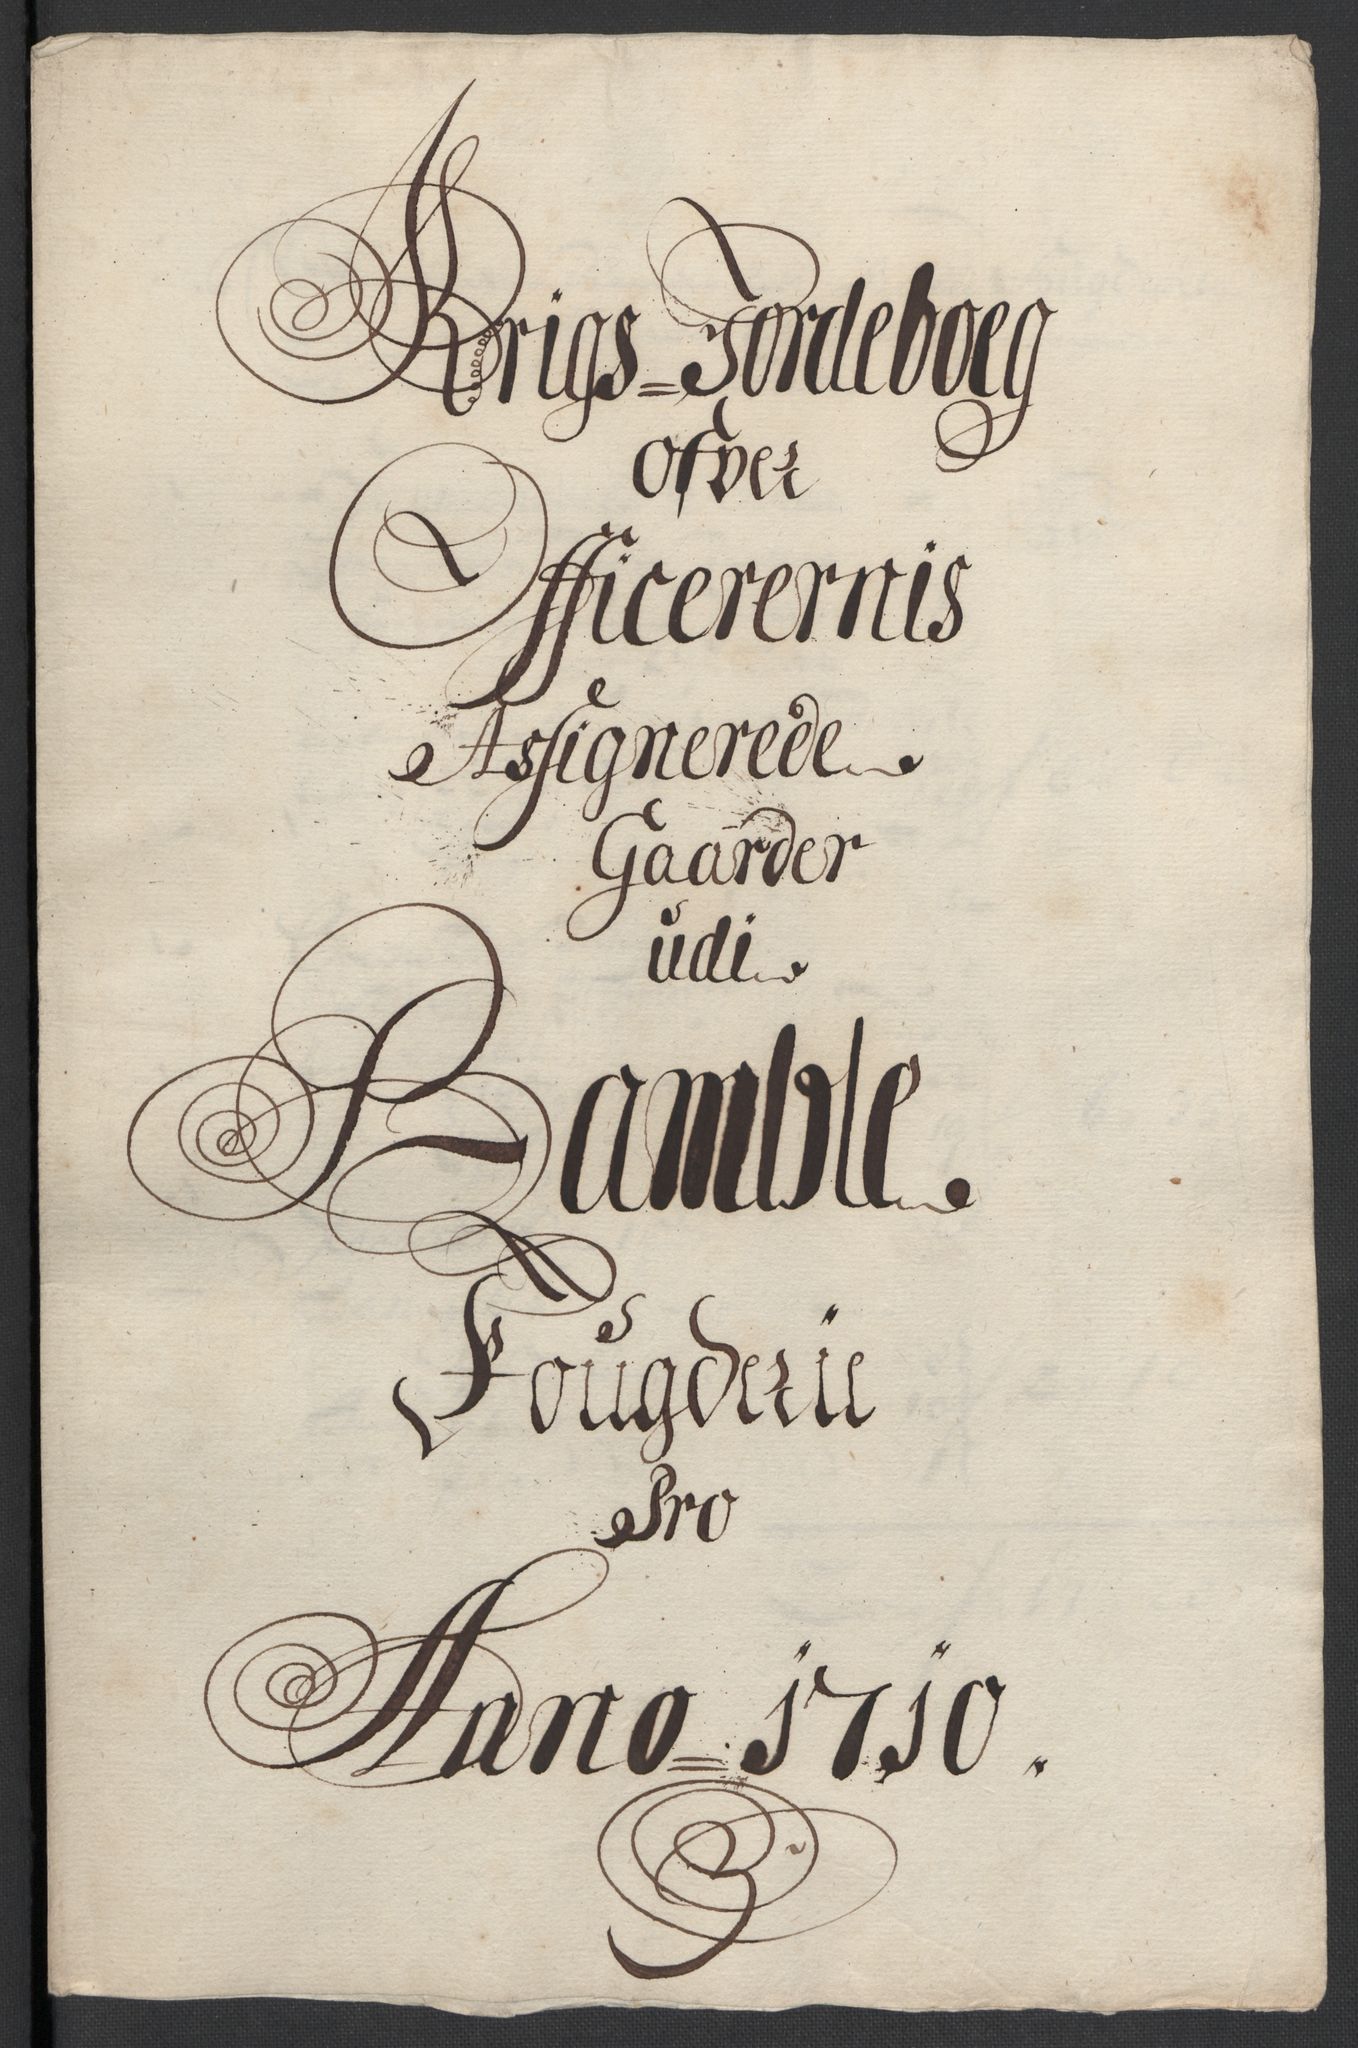 Krigs=Jordeboeg
ofver
Officerernis
Assignerede
Gaarder
udi
Bamble
Fougderie
Pro
Anno=1710.